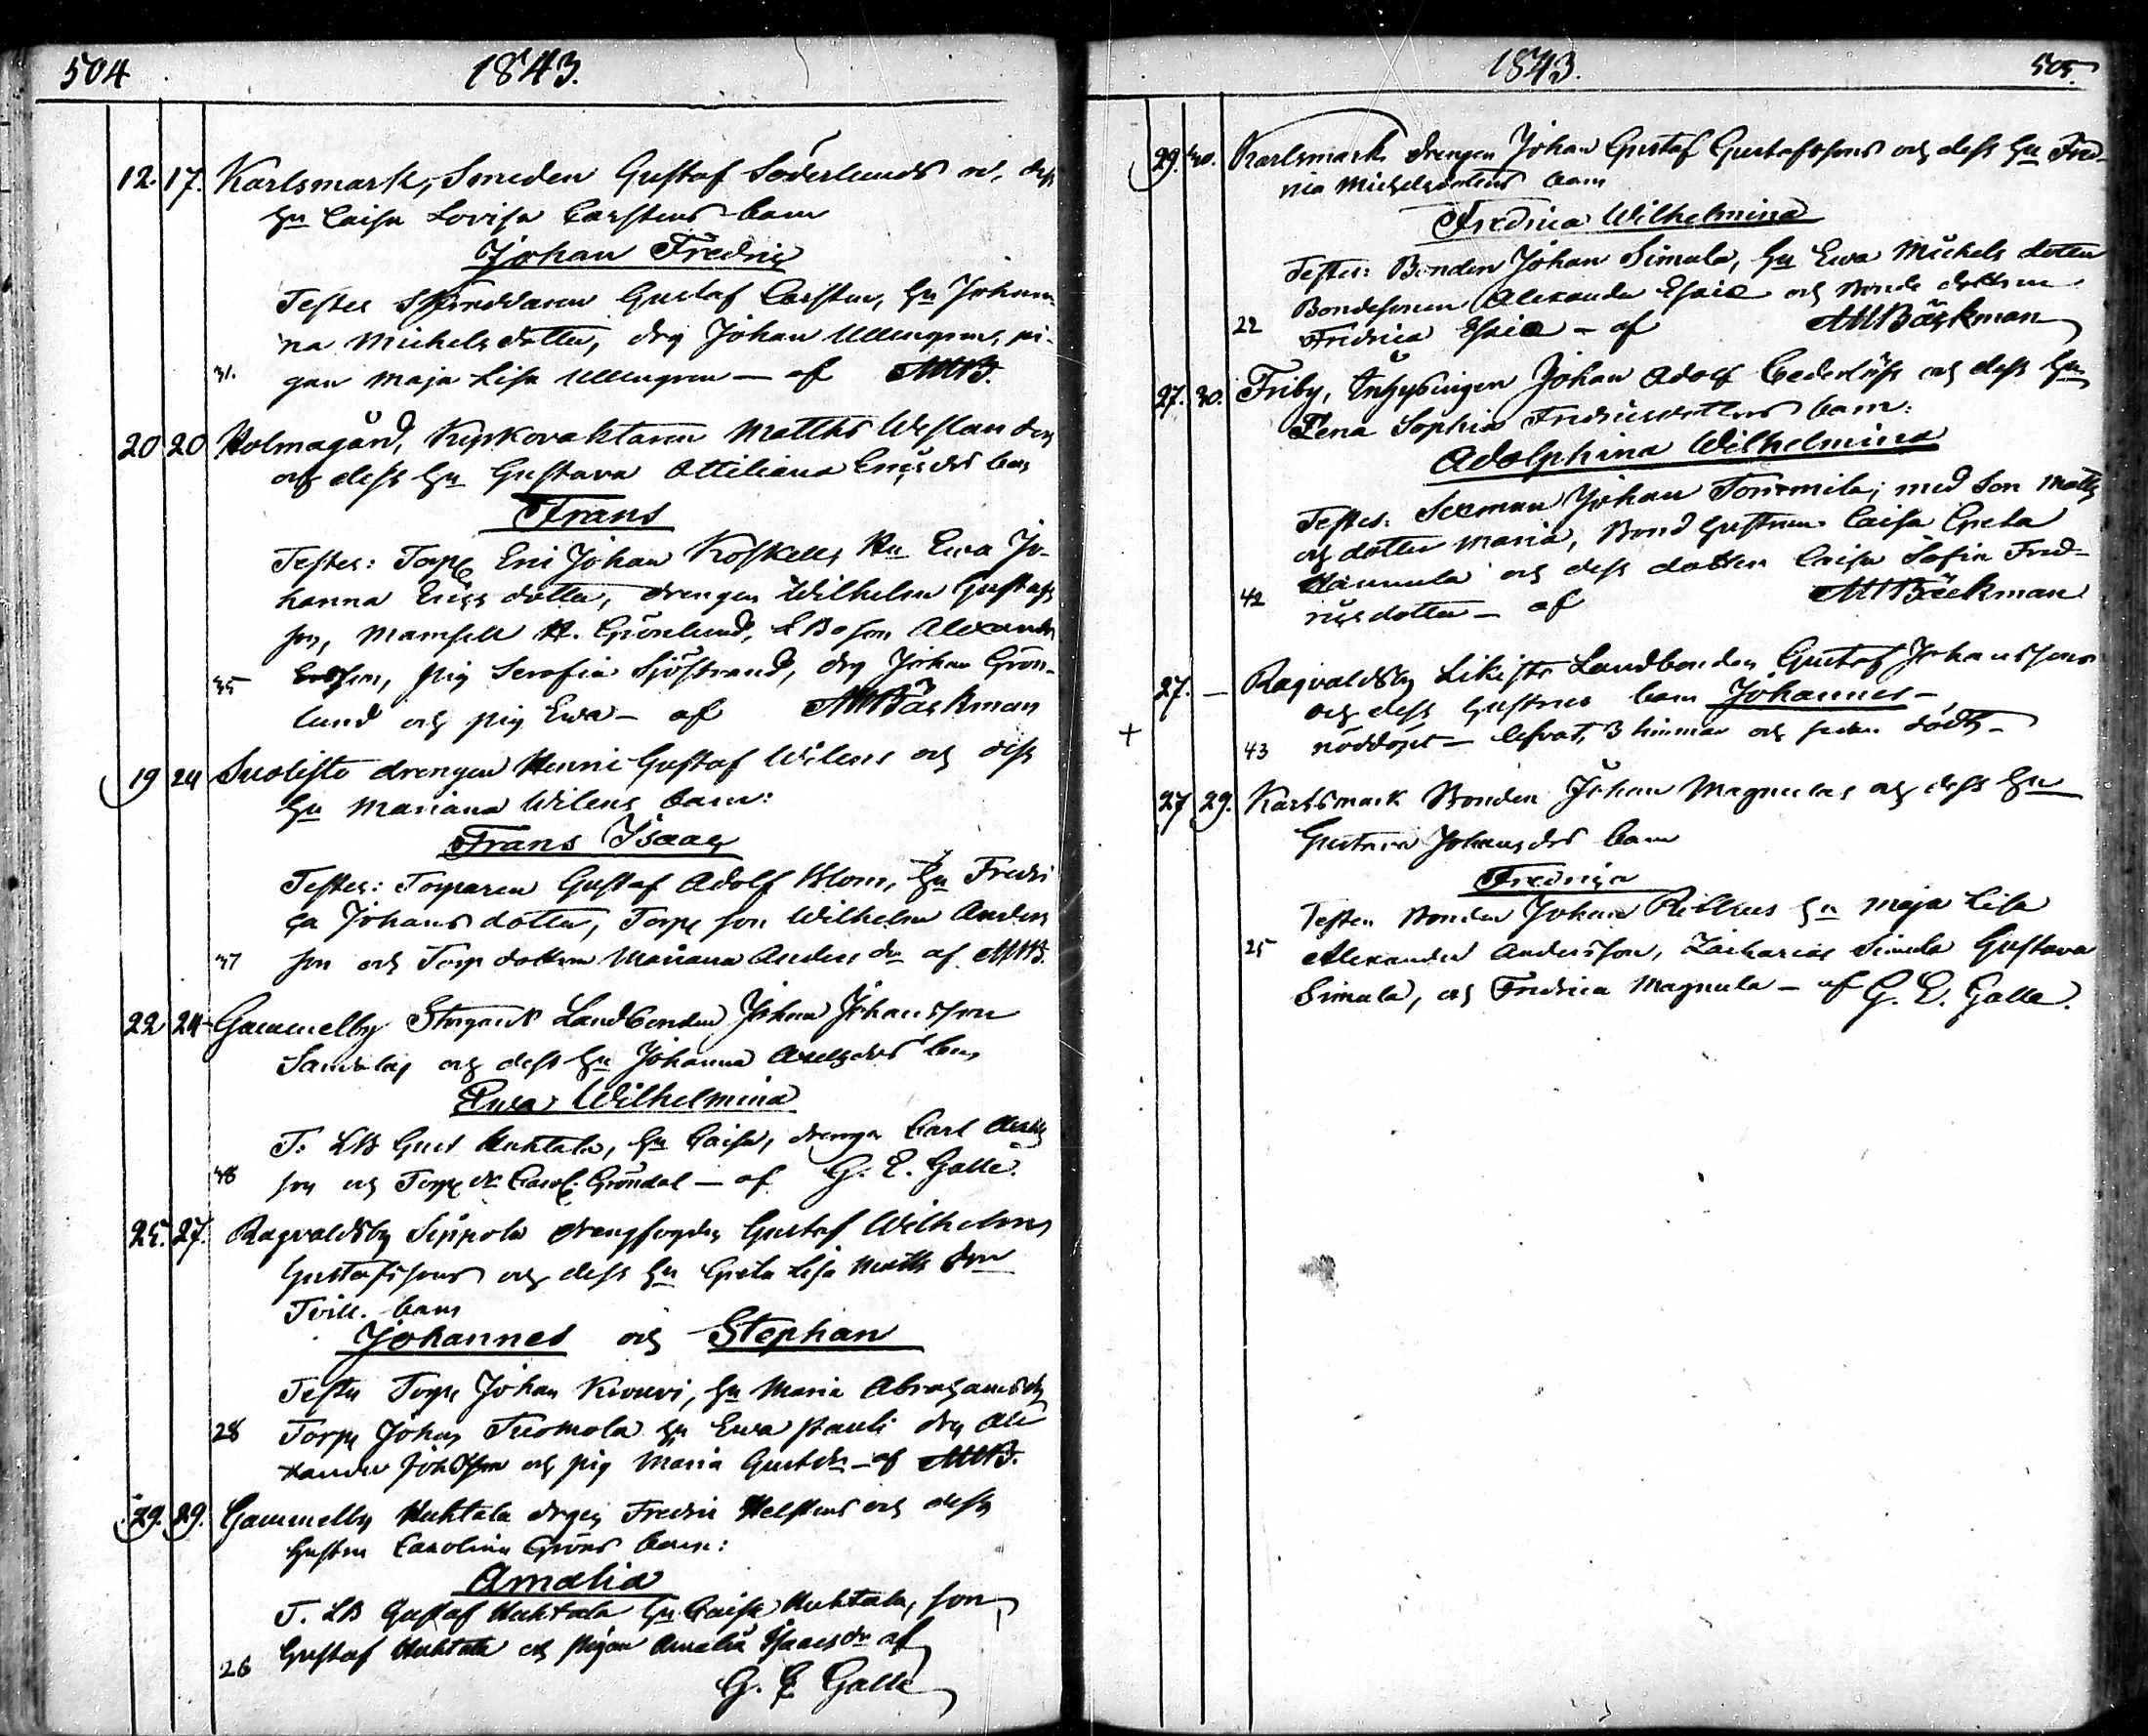 504 1843.
12. 17. Karlsmark, Smeden Gustaf Söderlunds och dess
Hu Caisa Lovisa Carstens barn
Johan Fredric
Testes Gustaf Carsten, Hu Johan-
na Michelsdotter, drg Johan Ullengren, pi-
31. gan Maja Lisa Ullengren — af MWB.
20 20 Holmagård, Matths Westlanders
och dess Hu Gustava Ottiliana Ericsdrs barn
Frans
Testes: Torp Eric Johan Koskell, Hu Ewa Jo-
hanna Ericsdotter, drengen Wilhelm Gustafs
son, Mamsell H. Grönlund, Alexander
35 Ersson, pig Serafia Sjöstrand, drg Johan Grön-
lund och pig Ewa — af MWBäckman
19 24 Suolisto drengen Henric Gustaf Wilens och dess
Hu Mariana Wilens barn:
Frans Isaac
Testes: Torparen Gustaf Adolf Blom, Hu Fredri
ca Johansdotter, Torp son Wilhelm Anders
37 son och Torp dottren Mariana Anders dr af MWB.
22 24 Gammelby Landbonden Johan Johansson
och dess Hu Johanna Axelsdrs barn
Ewa Wilhelmina
T: LB Gust Huhtala, Hu Caisa, drengen Carl
38 son och Torp dr Carol. Gröndal — af G. E. Gallé.
25. 27. Ragvaldsby Sippola drengfogden Gustaf Wilhelm
Gustafssons och dess Hu Greta Lisa Matts dr
Tvill. barn
Johannes och Stephan
Testes Torp Johan Hu Maria Abrahamsdr
28 Torp Johan Tuomola Hu Ewa Pauli drg Ale
xander Johsson och pig Maria Gustdr — af MWB.
29. 29. Gammelby Huhtala drgen Fredric Helstens och dess
Hustru Carolina Gröns barn:
Amalia
T. LB Gustaf Huhtala Hu Caisa Huhtala, son
26 Gustaf Huhtala och pigan Amalia Isaacsdr af
G. E. Gallé
1843. 505.
29. 30. Karlsmark drengen Johan Gustaf Gustafssons och dess Hu Fred-
rica Michelsdotters barn
Fredrica Wilhelmina
Testes: Bonden Johan Simula, Hu Ewa Michels dotter
Bondesonen Alexander Esaia och Bonde dottren
22 Fredrica Esaia — af MWBäckman
27. 30. Friby, Inhysingen Johan Adolf Cederlöfs och dess Hu
Lena Sophia Fredricsdotters barn:
Adolphina Wilhelmina
Testes: Sexman Johan Tommila; med Son Matts
och dotter Maria, Bond hustrun Caisa Greta
Hannula och dess dotter Caisa Sofia Fred-
42 ricsdotter — af MWBäckman
27. — Ragvaldsby Likisto Landbonden Gustaf Johanssons
och dess hustrus barn Johannes —
+ 43 nöddöpt — lefvat 3 timmar och sedan dödt —
27 29. Karlsmark Bonden Johan Magnulas och dess Hu
Gustava Johansdrs barn
Fredrica
Testes Bonden Johan Hu Maja Lisa
25 Alexander Andersson, Zacharias Simula Gustava
Simula, och Fredrica Magnula — af G. E. Gallé.